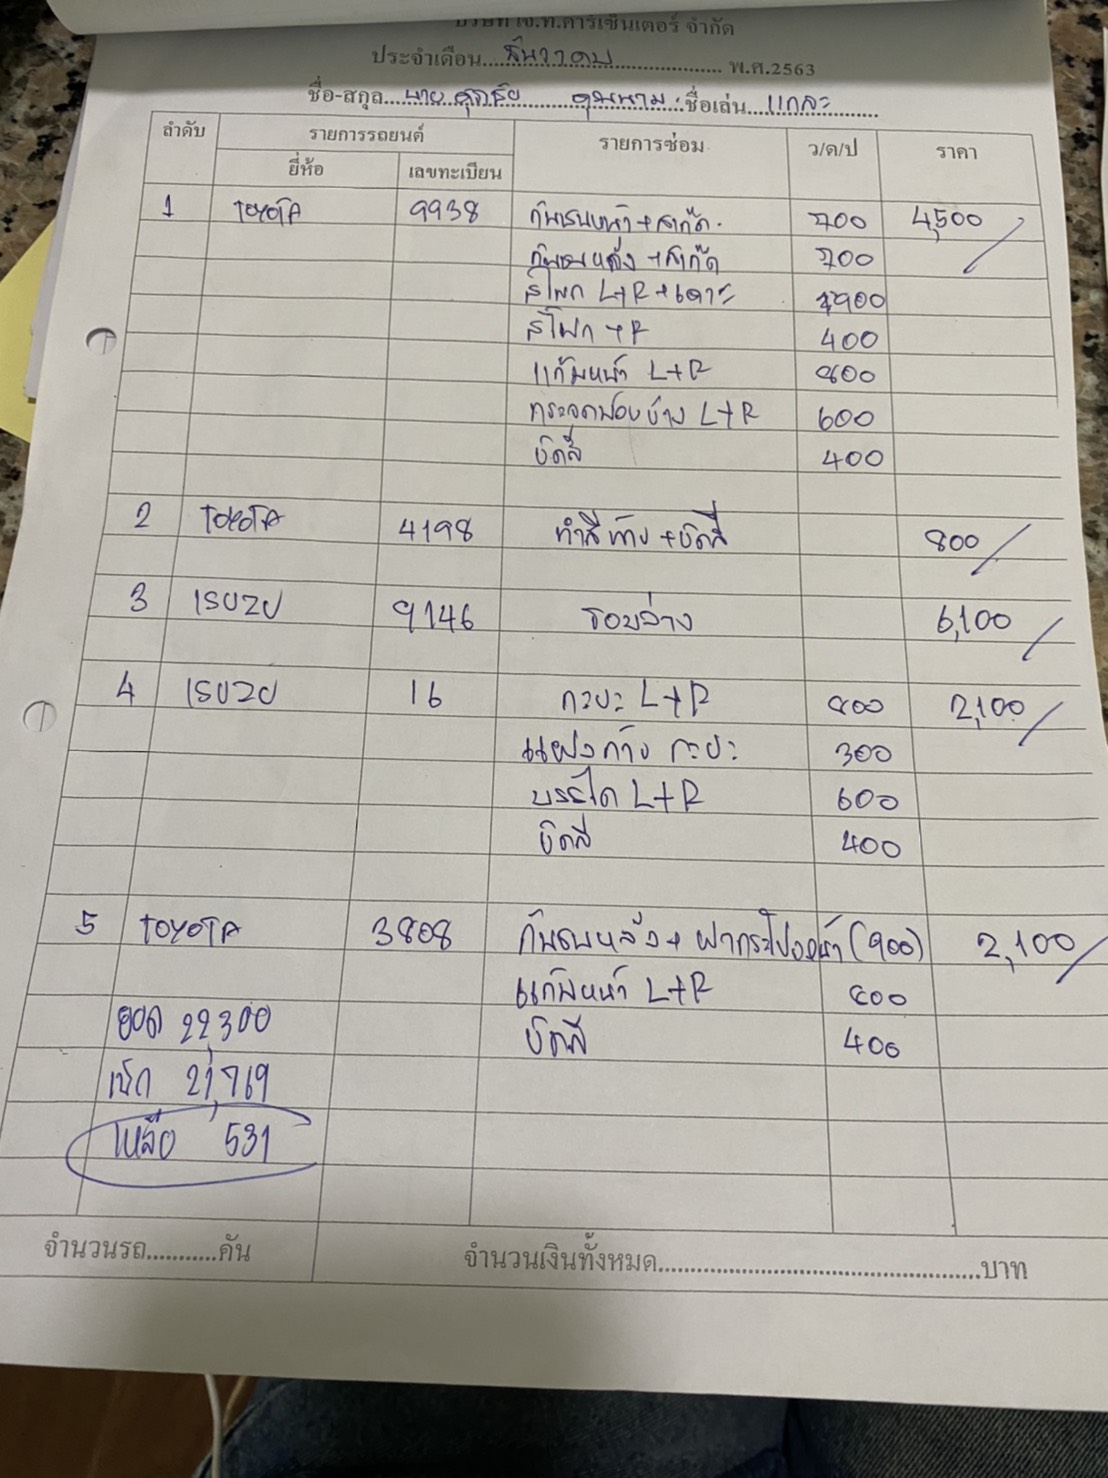 บริษัท เจ.ท.คาร์เซ็นเตอร์ จำกัด
ประจำเดือน....ธันวาคม.... พ.ศ.2563
ชื่อ-สกุล...นาย ศุภชัย ... ชื่อเล่น แกละ
ลำดับ รายการรถยนต์ รายการซ่อม ว/ด/ป ราคา
ยี่ห้อ เลขทะเบียน
1 TOYOTA 9938 กันชนหน้า+สเกิ๊ต 700 4,500
กันชนหลัง+สเกิ๊ต 700
สไพก L+R+เคาะ 900
สไพก+R 400
แก้มหน้า L+R 800
กระจกมองข้าง L+R 600
ขัดสี 400
2 TOYOTA 4198 ทำสี +ขัดสี 800
3 ISUZU 9146 รอบล่าง 6,100
4 ISUZU 16 กะบะ L+R 800 2,100
แผงท้าย กะบะ 300
บรรได L+R 600
ขัดสี 400
5 TOYOTA 3808 กันชนหลัง+ฝากระโปงหน้า (900) 2,100
แก้มหน้า L+R 800
ขัดสี 400
ยอด 22,300
เบิก 21,769
เหลือ 531
จำนวนรถ...........คัน จำนวนเงินทั้งหมด......................................................บาท